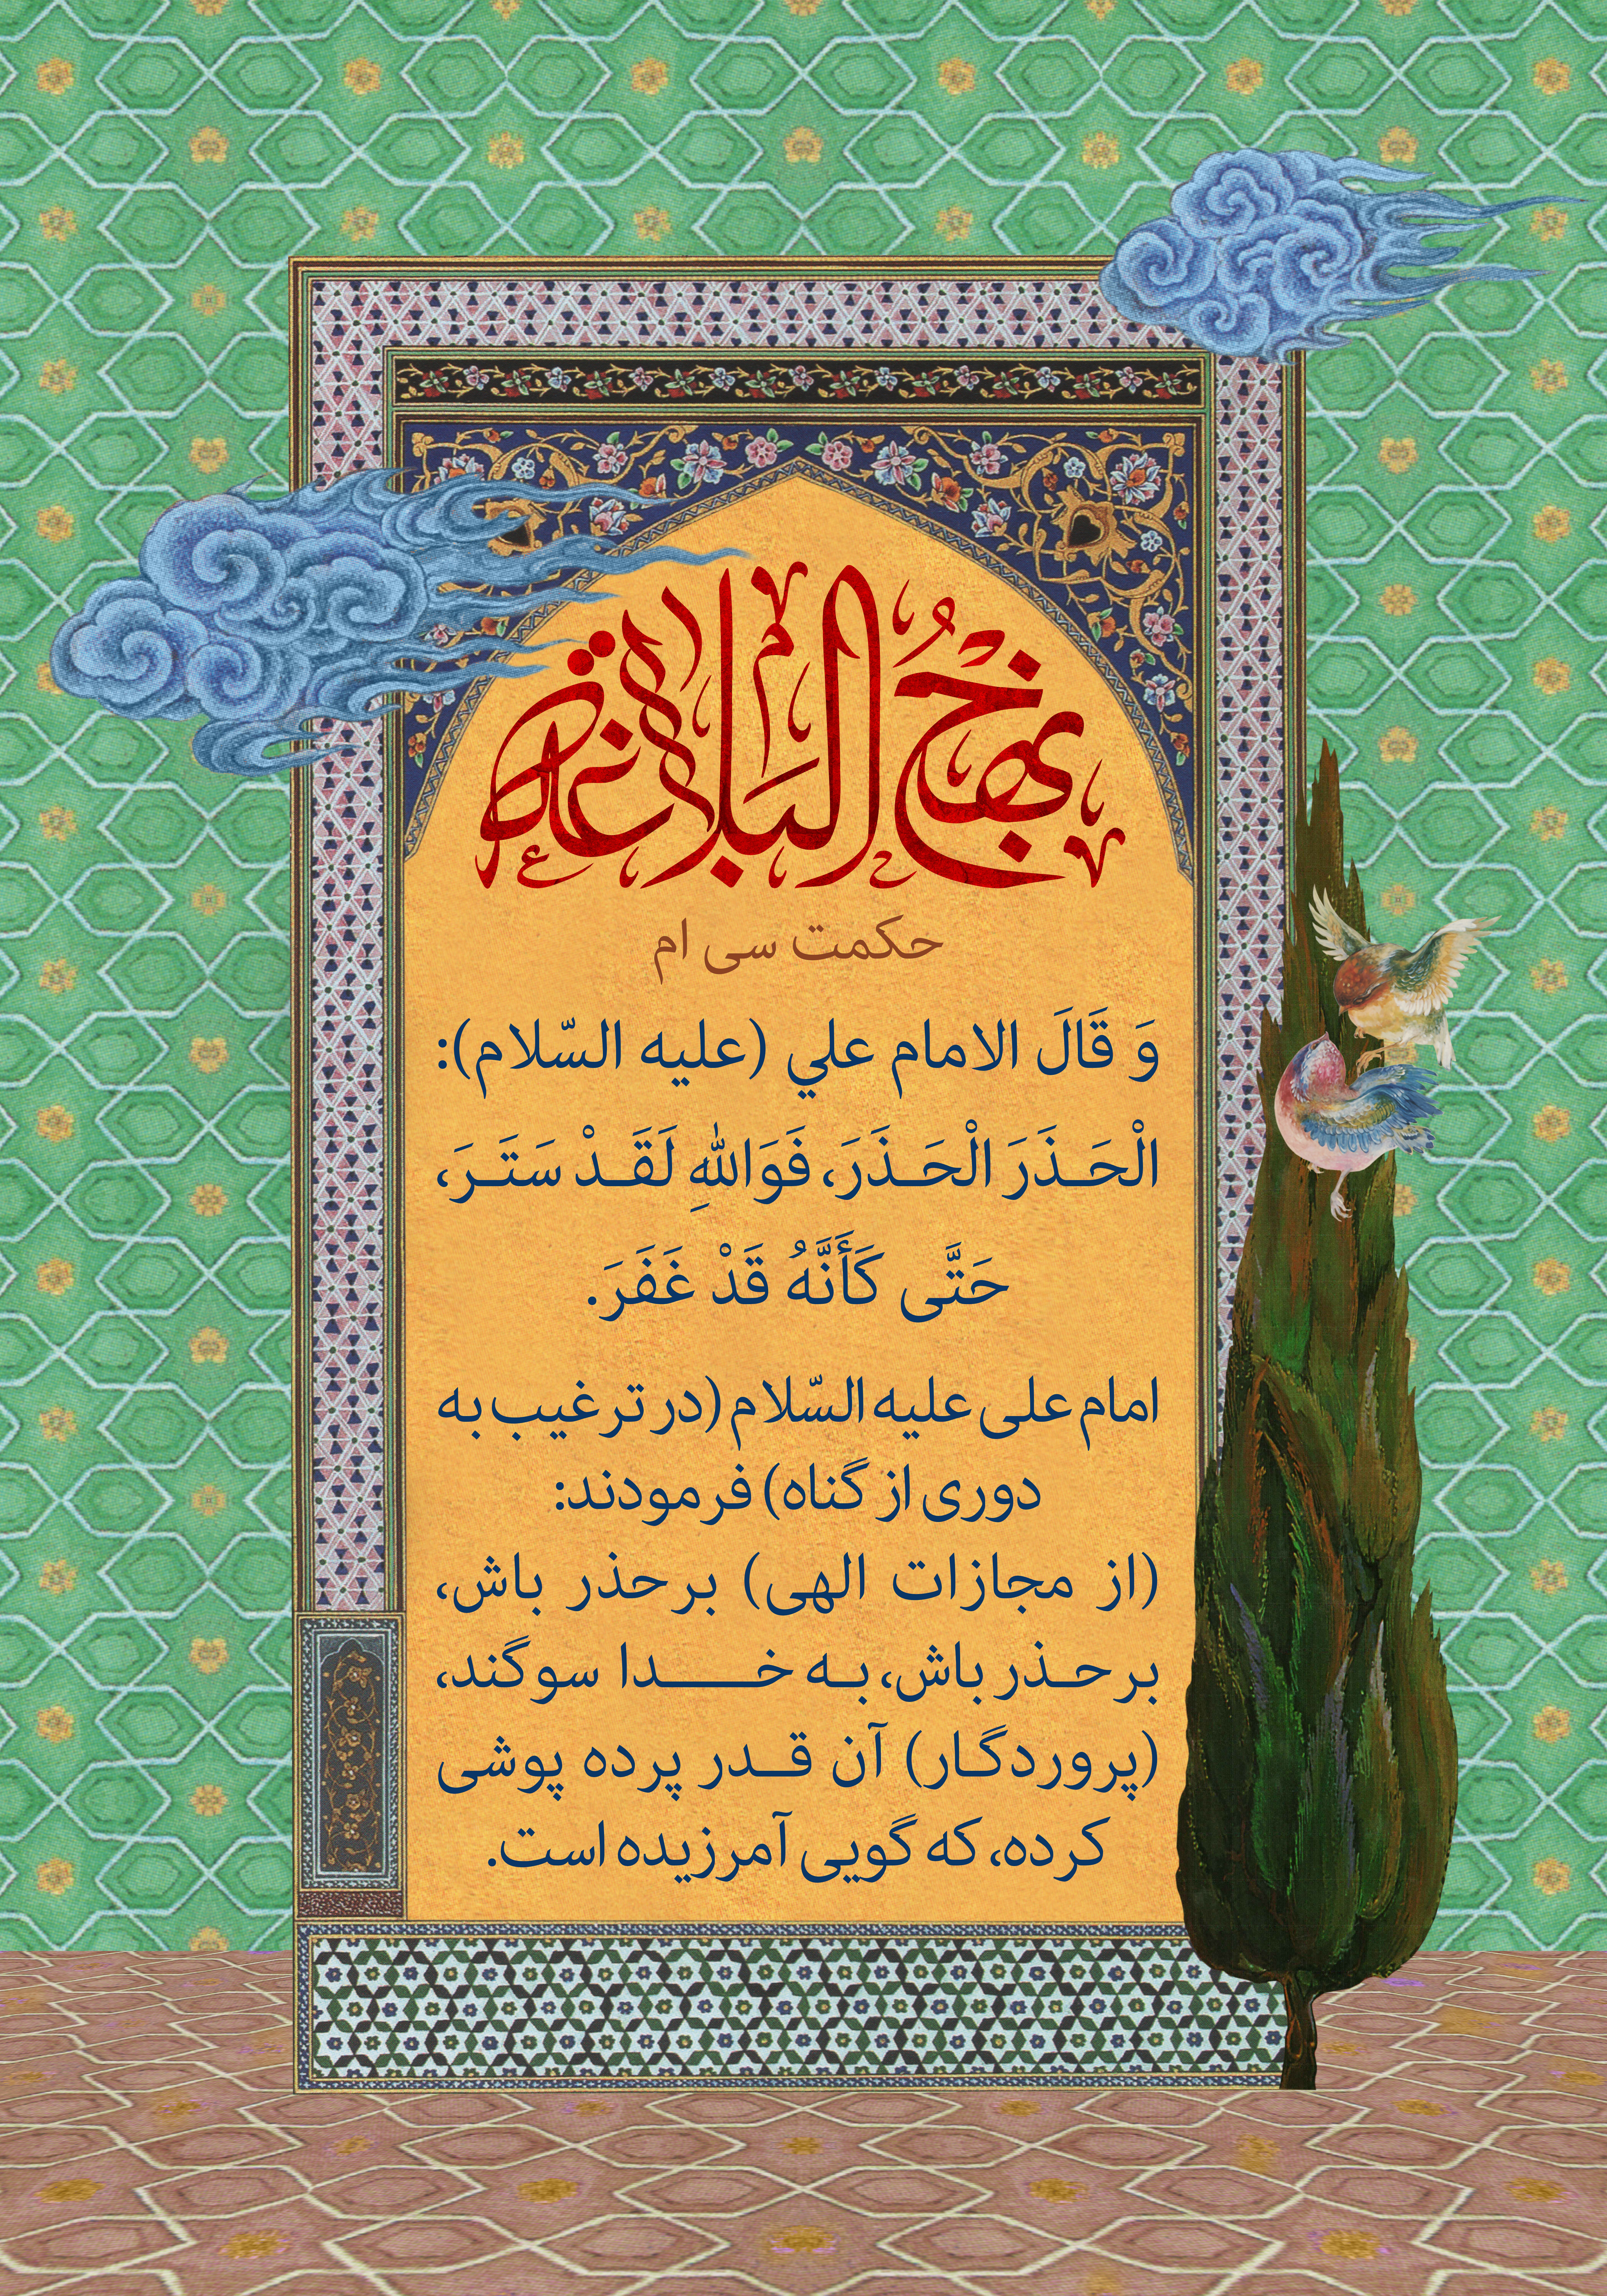 نَهْجُ الْبَلاغَة
حکمت سی ام
وَ قَالَ الامام علي (علیه السّلام):
الْحَـذَرَ الْحَـذَرَ، فَوَاللهِ لَقَـدْ سَتَـرَ،
حَتَّى كَأَنَّهُ قَدْ غَفَرَ.
امام علی علیه السّلام (در ترغیب به
دوری از گناه) فرمودند:
(از مجازات الهی) برحذر باش،
برحـذر باش، بـه خـــدا سوگند،
(پروردگـار) آن قـدر پرده پوشی
کرده، که گویی آمرزیده است.